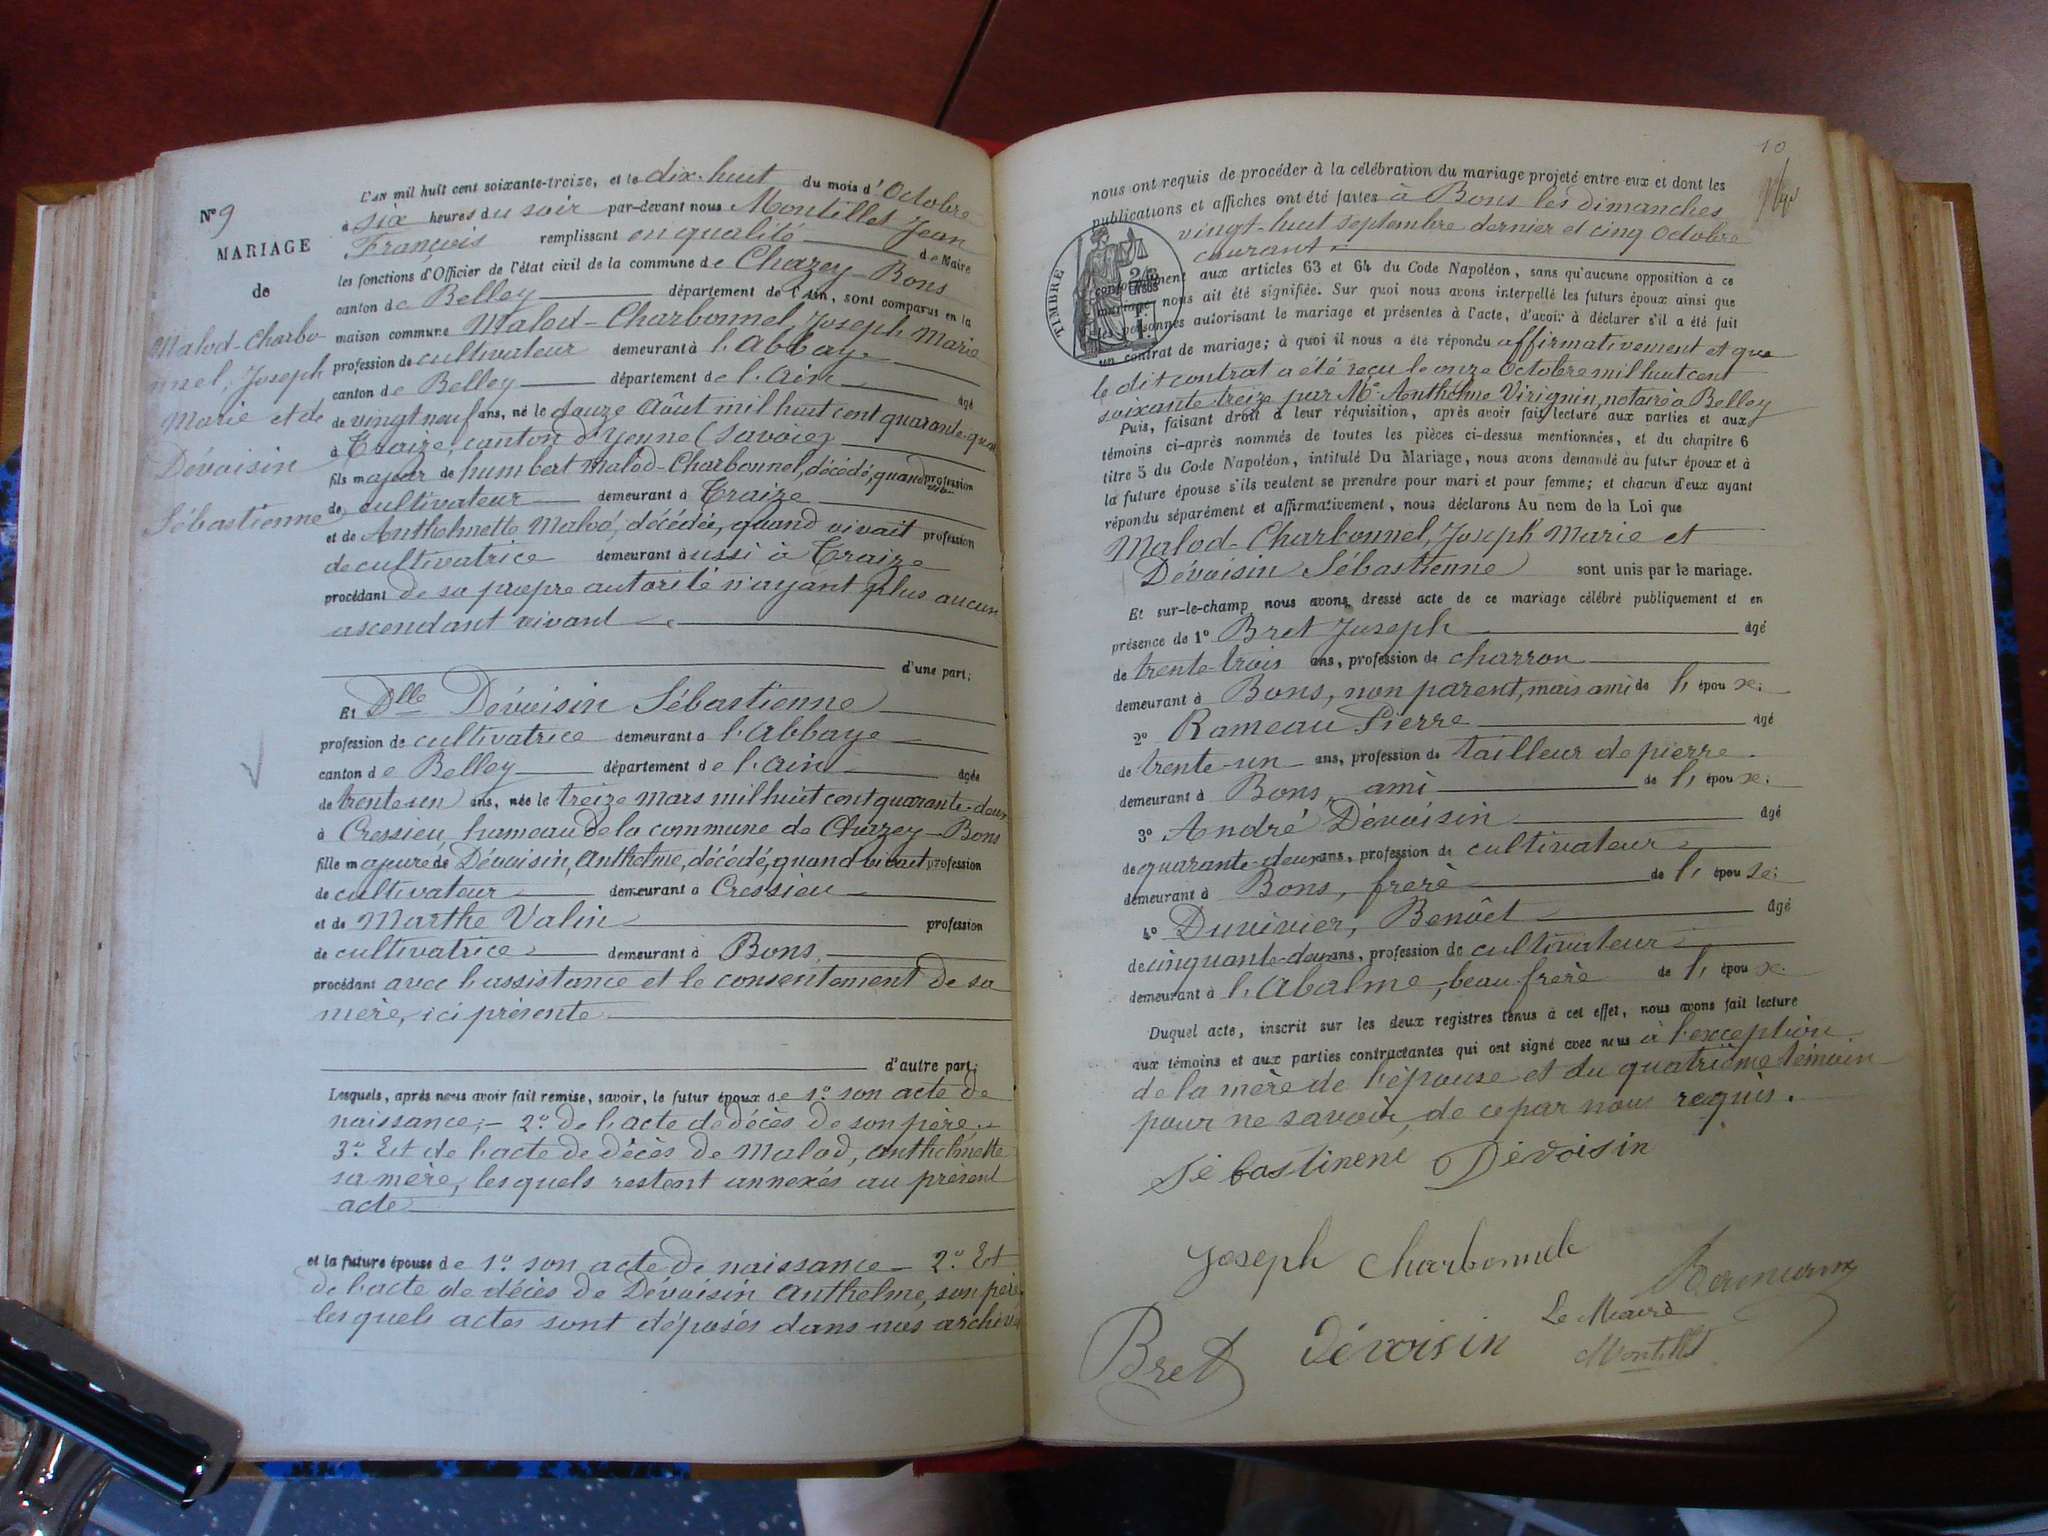 N° 9
MARIAGE
de
Malod-Charbo
nnel, Joseph
Marie et de
Dévoisin
Sébastienne
L'AN mil huit cent soixante-treize, et le dix-huit du mois d'Octobre
à six heures du soir par-devant nous Montillet Jean
François remplissant en qualité de Maire
les fonctions d'Officier de l'état civil de la commune de Chazey-Bons
canton de Belley département de l'Ain, sont comparus en la
maison commune Malod-Charbonnel, Joseph Marie
profession de cultivateur demeurant à l'Abbaye
canton de Belley département de l'Ain âgé
de vingt neuf ans, né le douze Août mil huit cent quarante-quat
à Traize, canton d'Yenne (Savoie)
fils majeur de humbert Malod-Charbonnel, décédé, quand vivait profession
de cultivateur demeurant à Traize
et de Anthelmette Malod, décédée, quand vivait profession
de cultivatrice demeurant aussi à Traize
procédant de sa propre autorité n'ayant plus aucun
ascendant vivant
d'une part;
Et Dlle Dévoisin Sébastienne
profession de cultivatrice demeurant à l'Abbaye
canton de Belley département de l'Ain âgée
de trente-un ans, née le treize Mars mil huit cent quarante-deux
à Cressieu, hameau de la commune de Chazey-Bons
fille majeure de Dévoisin, Anthelme, décédé, quand vivait, profession
de cultivateur demeurant à Cressieu
et de Marthe Valin profession
de cultivatrice demeurant à Bons,
procédant avec l'assistance et le consentement de sa
mère, ici présente
d'autre part;
Lesquels, après nous avoir fait remise, savoir, le futur époux de 1° son acte de
naissance; - 2° de l'acte de décès de son père; -
3° Et de l'acte de décès de Malod, Anthelmette
sa mère, lesquels restent annexés au présent
acte
et la future épouse de 1° son acte de naissance - 2° Et
de l'acte de décès de Dévoisin Anthelme, son père,
lesquels actes sont déposés dans nos archives
10
nous ont requis de procéder à la célébration du mariage projeté entre eux et dont les
publications et affiches ont été faites à Bons les dimanches
vingt-huit septembre dernier et cinq Octobre
courant
TIMBRE
conformément aux articles 63 et 64 du Code Napoléon, sans qu'aucune opposition à ce
mariage nous ait été signifiée. Sur quoi nous avons interpellé les futurs époux ainsi que
les personnes autorisant le mariage et présentes à l'acte, d'avoir à déclarer s'il a été fait
un contrat de mariage; à quoi il nous a été répondu affirmativement et que
le dit contrat a été reçu le onze Octobre mil huit cent
soixante-treize par Me Anthelme Virignin, notaire à Belley
Puis, faisant droit à leur réquisition, après avoir fait lecture aux parties et aux
témoins ci-après nommés de toutes les pièces ci-dessus mentionnées, et du chapitre 6
titre 5 du Code Napoléon, intitulé Du Mariage, nous avons demandé au futur époux et à
la future épouse s'ils veulent se prendre pour mari et pour femme; et chacun d'eux ayant
répondu séparément et affirmativement, nous déclarons Au nom de la Loi que
Malod-Charbonnel, Joseph Marie et
Dévoisin Sébastienne sont unis par le mariage.
Et sur-le-champ nous avons dressé acte de ce mariage célébré publiquement et en
présence de 1° Bret Joseph âgé
de trente-trois ans, profession de charron
demeurant à Bons, non parent, mais ami de l' époux;
2° Rameau Pierre âgé
de trente-un ans, profession de tailleur de pierre
demeurant à Bons, ami de l' époux;
3° André Dévoisin âgé
de quarante-deux ans, profession de cultivateur
demeurant à Bons, frère de l' épouse;
4° Duvivier, Benôet âgé
de cinquante-deux ans, profession de cultivateur
demeurant à l'Abalme, beau frère de l' époux
Duquel acte, inscrit sur les deux registres tenus à cet effet, nous avons fait lecture
aux témoins et aux parties contractantes qui ont signé avec nous à l'exception
de la mère de l'épouse et du quatrième témoin
pour ne savoir, de ce par nous requis.
Sébastinene Dévoisin
Joseph Charbonnele
Rameaux
Bret Dévoisin Le Maire
Montillet